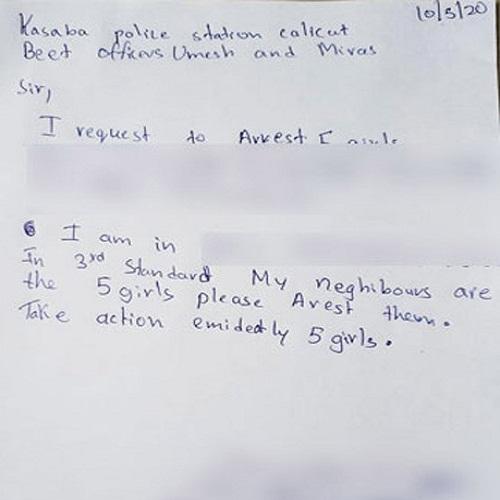 10/5/20
Kasaba police station calicut
Beet officers Umesh and Miras
Sir,
I request to Arrest 5 girls
6 I am in
In 3rd Standard My neghibours are
the 5 girls please Arest them.
Take action emidedtly 5 girls.